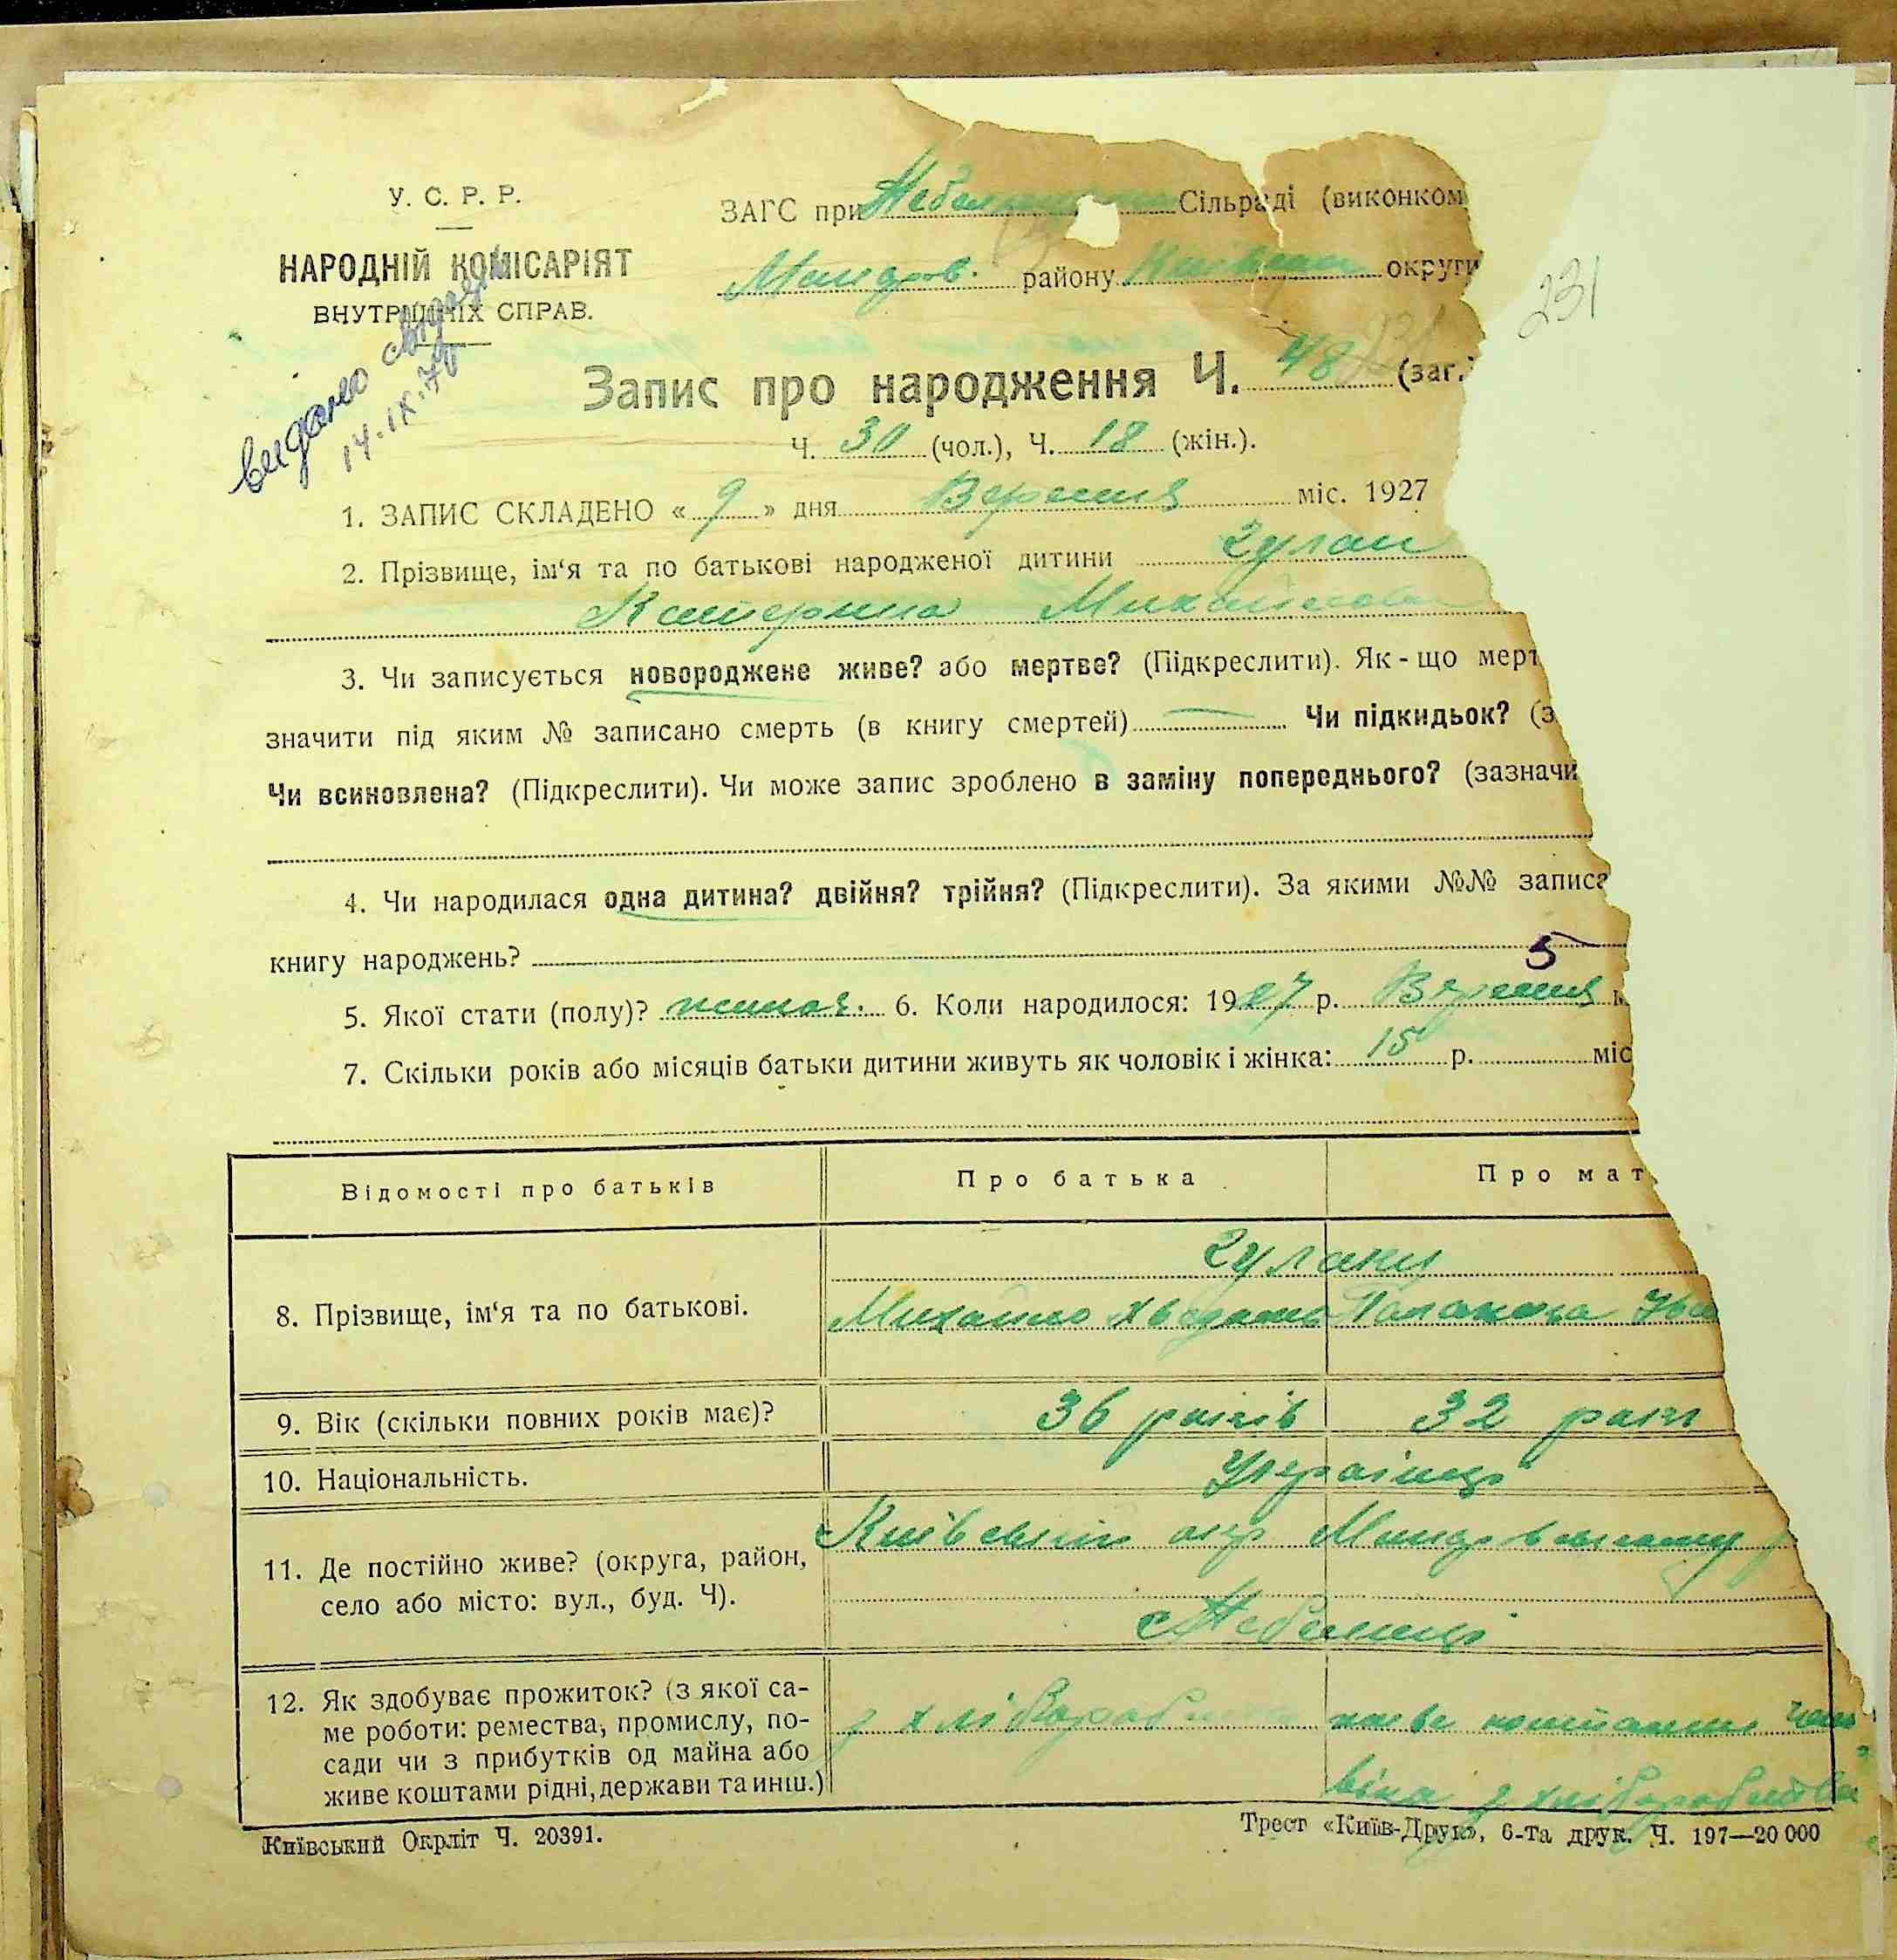 У. С. Р. Р.
НАРОДНІЙ КОМІСАРІЯТ
ВНУТРІШНІХ СПРАВ.
видано
14.IX.70
ЗАГС при Сільраді (виконком
району округи
231
Запис про народження Ч. 48 (заг.)
Ч. 30 (чол.), Ч. 18 (жін.).
1. ЗАПИС СКЛАДЕНО « 9 » дня Вересня міс. 1927
2. Прізвище, ім‘я та по батькові народженої дитини Гулак
Катерина Михайлова
3. Чи записується новороджене живе? або мертве? (Підкреслити). Як-що мерт
значити під яким № записано смерть (в книгу смертей) — Чи підкидьок? (з
Чи всиновлена? (Підкреслити). Чи може запис зроблено в заміну попереднього? (зазначи
4. Чи народилася одна дитина? двійня? трійня? (Підкреслити). За якими №№ записа
книгу народжень?
5
5. Якої стати (полу)? жіноч. 6. Коли народилося: 1927 р. Вересня м
7. Скільки років або місяців батьки дитини живуть як чоловік і жінка: 15 р. міс
Відомості про батьків Про батька Про мат
Гулаки
8. Прізвище, ім‘я та по батькові. Михайло
9. Вік (скільки повних років має)? 36 років 32 роки
10. Національність. Українці
Київської окр
11. Де постійно живе? (округа, район,
село або місто: вул., буд. Ч).
с Небелиці
12. Як здобуває прожиток? (з якої са-
ме роботи: ремества, промислу, по-
сади чи з прибутків од майна або
живе коштами рідні, держави та инш.)
з хлібороб
живе коштами чоло
віка з хліборобства
Київський Окрліт Ч. 20391.
Трест «Київ-Друк», 6-та друк. Ч. 197—20 000